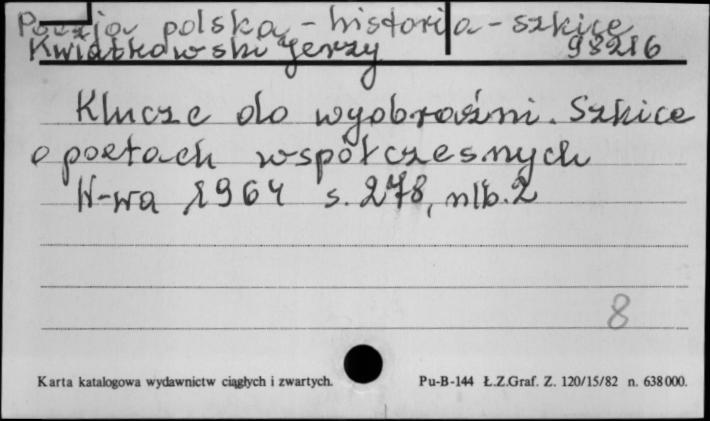 Poezja polska - historia - szkice
Kwiatkowski Jerzy 98216
Klucze do wyobraźni. Szkice
o poetach współczesnych
W-wa 1964 s. 278, nlb. 2
8
Karta katalogowa wydawnictw ciągłych i zwartych. Pu-B-144 Ł.Z.Graf. Z. 120/15/82 n. 638000.